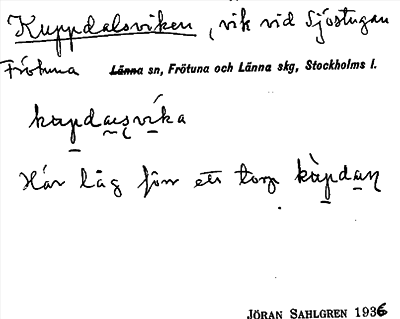 Kuppdalsviken, vik vid Sjöstugan
Frötuna Länna sn, Frötuna och Länna skg, Stockholms l.
kupdaɩsvíka
Här låg förr ett torp kùpdan
JÖRAN SAHLGREN 1936